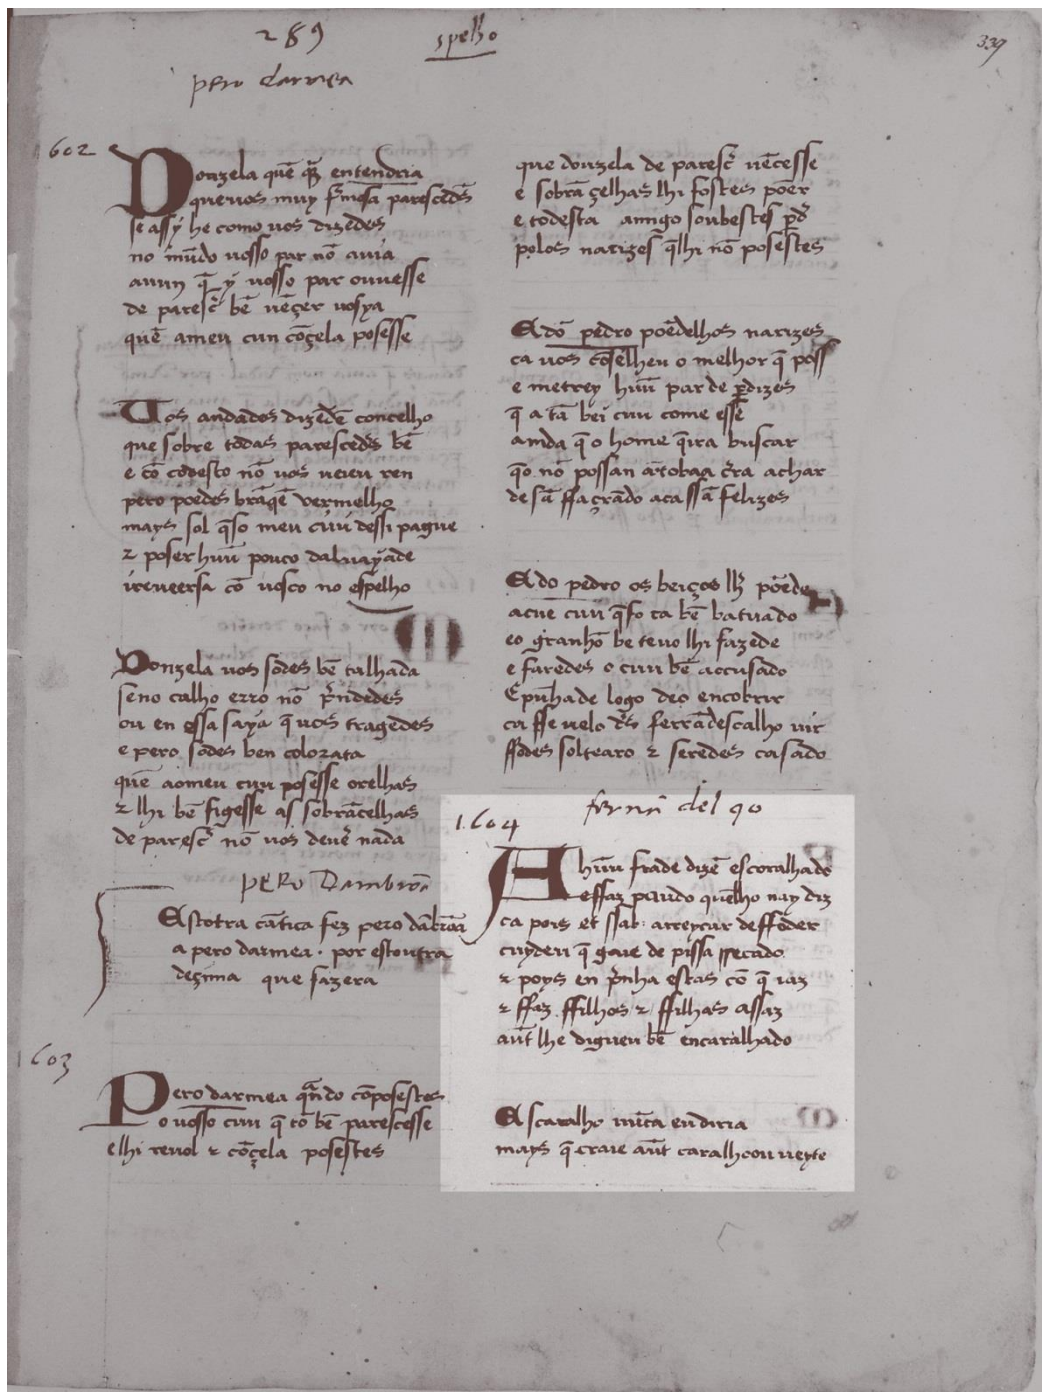 289
spelho
339
pero darmea
1602
Donzela quē q̄r entendria
queuos muy fr̄mosa parescedˢ
se assy he como uos dizedes
no mūdo uosso par nō auia
aūun q̄ y uosso par ouuesse
de paresc̄ bē uēçer uosya
quē ameu cuu cōçela posesse
Uos andades dizēdē concelho
que sobre todas parescedˢ bē
e cō todesto nā uos ueieu ren
pero poedes brāq̄ē vermelho
mays sol q̄so meu cuu dessi pague
⁊ poser huū pouco daluayade
ireueersa cō uosco no espelho
Donzela uos sodes bē talhada
seno talho erro nō pr̄ndedes
ou en essa saya q̄ uos tragedes
e pero sodes ben colorata
quē aomeu cuu posesse orelhas
⁊ lhi bē figesse as sobrācelhas
de paresc̄ nō uos deuē nada
PERo Dambroā
Estotra cātica fez pero dābroā
a pero darmea · por estoutra
dezima que fazera
1603
Pero darmea q̄ndo cōposestes
o uosso cuu q̄ tō bē parescesse
elhi reuol ⁊ cōçela posestes
que donzela de paresc̄ uēcesse
e sobrāçelhas lhi fostes poer
e todesta amigo soubestes pder̄
polos narizes q̄lhi nō posestes
E dō pedro poēdelhos narizes
ca uos cōselheu o melhor q̄ poss
e metrey huū par de p̄dizes
q̄ a tā bei cuu come esse
ainda q̄ o home q̄ira buscar
q̄o nō possan ātobaa tr̄ra achar
de sā ffaçrādo acassā felizes
E do pedro os beiços lhˢ pōede
acue cuu q̄sso ca bē baruado
eo granhō be teuo lhi fazede
e faredes o cuu bē arrusado
E punhade logo deo encobrir
ca sse uelo ue᷃s ferrādescalho uir
ssodes solteiro ⁊ seredes casado
1604
fernā del go
A huū frade dizē escoralhado
e ffaz pecudo quēlho nay diz
ca pois el ssab: arreytar deffoder
cuydeu q̄ gaue de pissa rrecado
⁊ poys en pr̄nha estas cō q̄ iaz
⁊ ffaz ffilhos ⁊ ffilhas assaz
ant̄ lhe digueu bē encaralhado
Escaralho nūca eu diria
mays q̄ traie ant̄ caralhoou ueyte